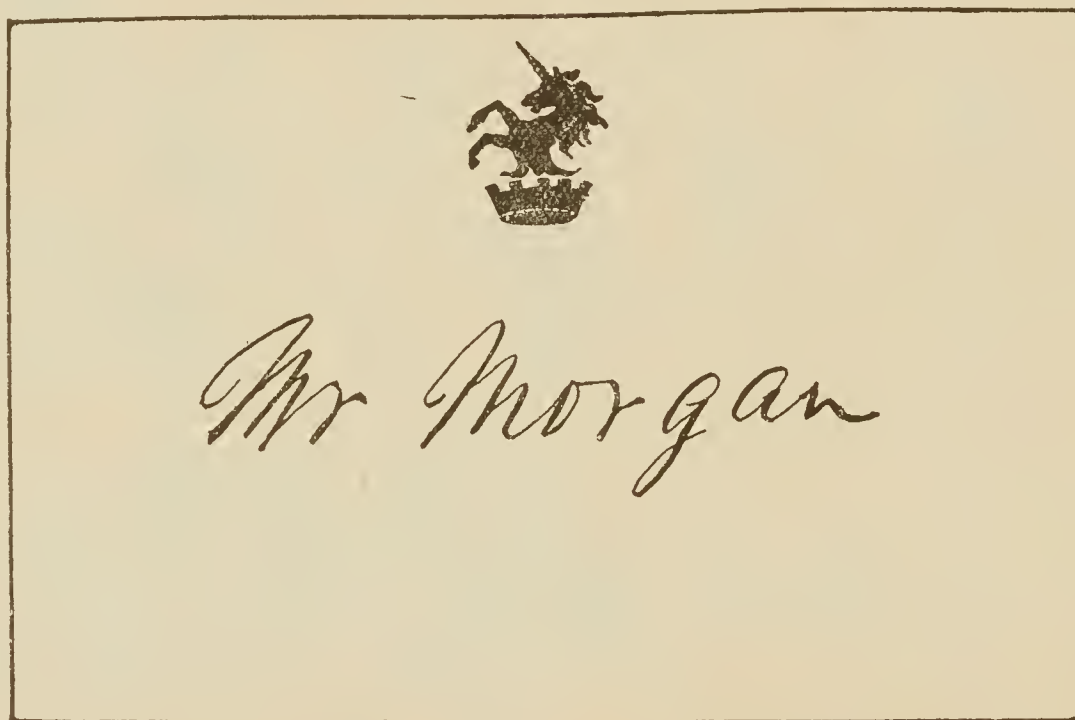 Mr Morgan